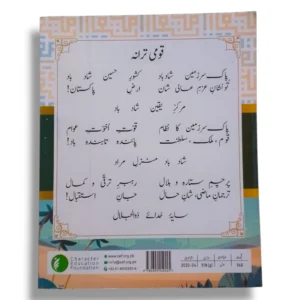 قومی ترانہ
پاک سرزمین شاد باد کشورِ حسین شاد باد
تو نشانِ عزمِ عالی شان ارضِ پاکستان!
مرکزِ یقین شاد باد
پاک سرزمین کا نظام قوتِ اخوتِ عوام
قوم، ملک، سلطنت پائندہ تابندہ باد!
شاد باد منزلِ مراد
پرچمِ ستارہ و ہلال رہبرِ ترقی و کمال
ترجمانِ ماضی، شانِ حال جانِ استقبال!
سایۂ خدائے ذوالجلال
Character
Education
Foundation
www.cef.org.pk
info@cef.org.pk